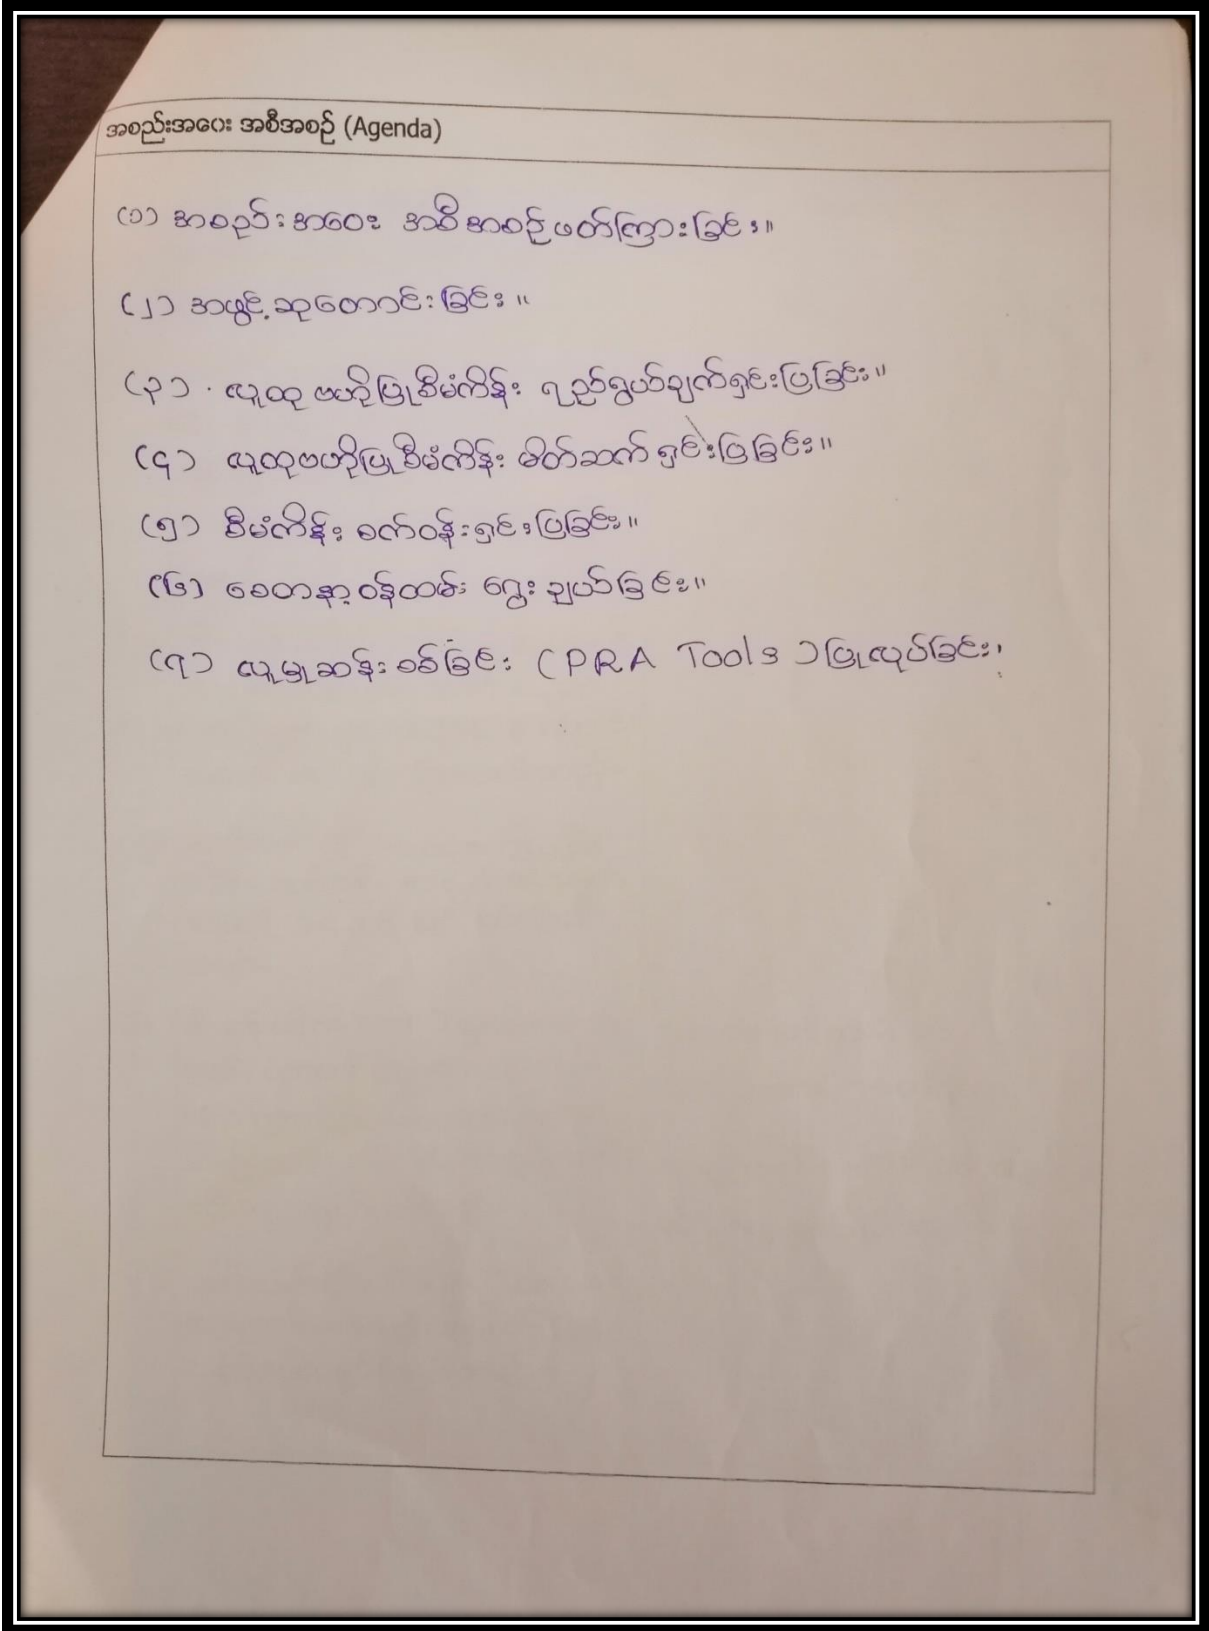 အစည်းအဝေး အစီအစဉ် (Agenda)
(၁) အစည်းအဝေး အစီအစဉ်ဖတ်ကြားခြင်း။
(၂) အဖွင့်ဆုတောင်းခြင်း။
(၃) လူထုဗဟိုပြုစီမံကိန်း ရည်ရွယ်ချက်ရှင်းပြခြင်း။
(၄) လူထုဗဟိုပြုစီမံကိန်း မိတ်ဆက်ရှင်းပြခြင်း။
(၅) စီမံကိန်း စက်ဝန်းရှင်းပြခြင်း။
(၆) စေတနာ့ဝန်ထမ်း ရွေးချယ်ခြင်း။
(၇) လူမှုဆန်းစစ်ခြင်း (PRA Tools) ပြုလုပ်ခြင်း၊